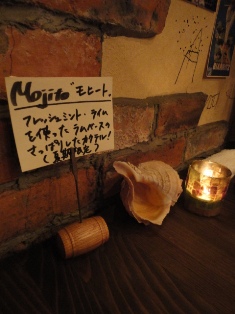 Mojito モヒート.
フレッシュミント・ライム
を使った ラムベースの
さっぱりしたカクテル!
(夏期限定)